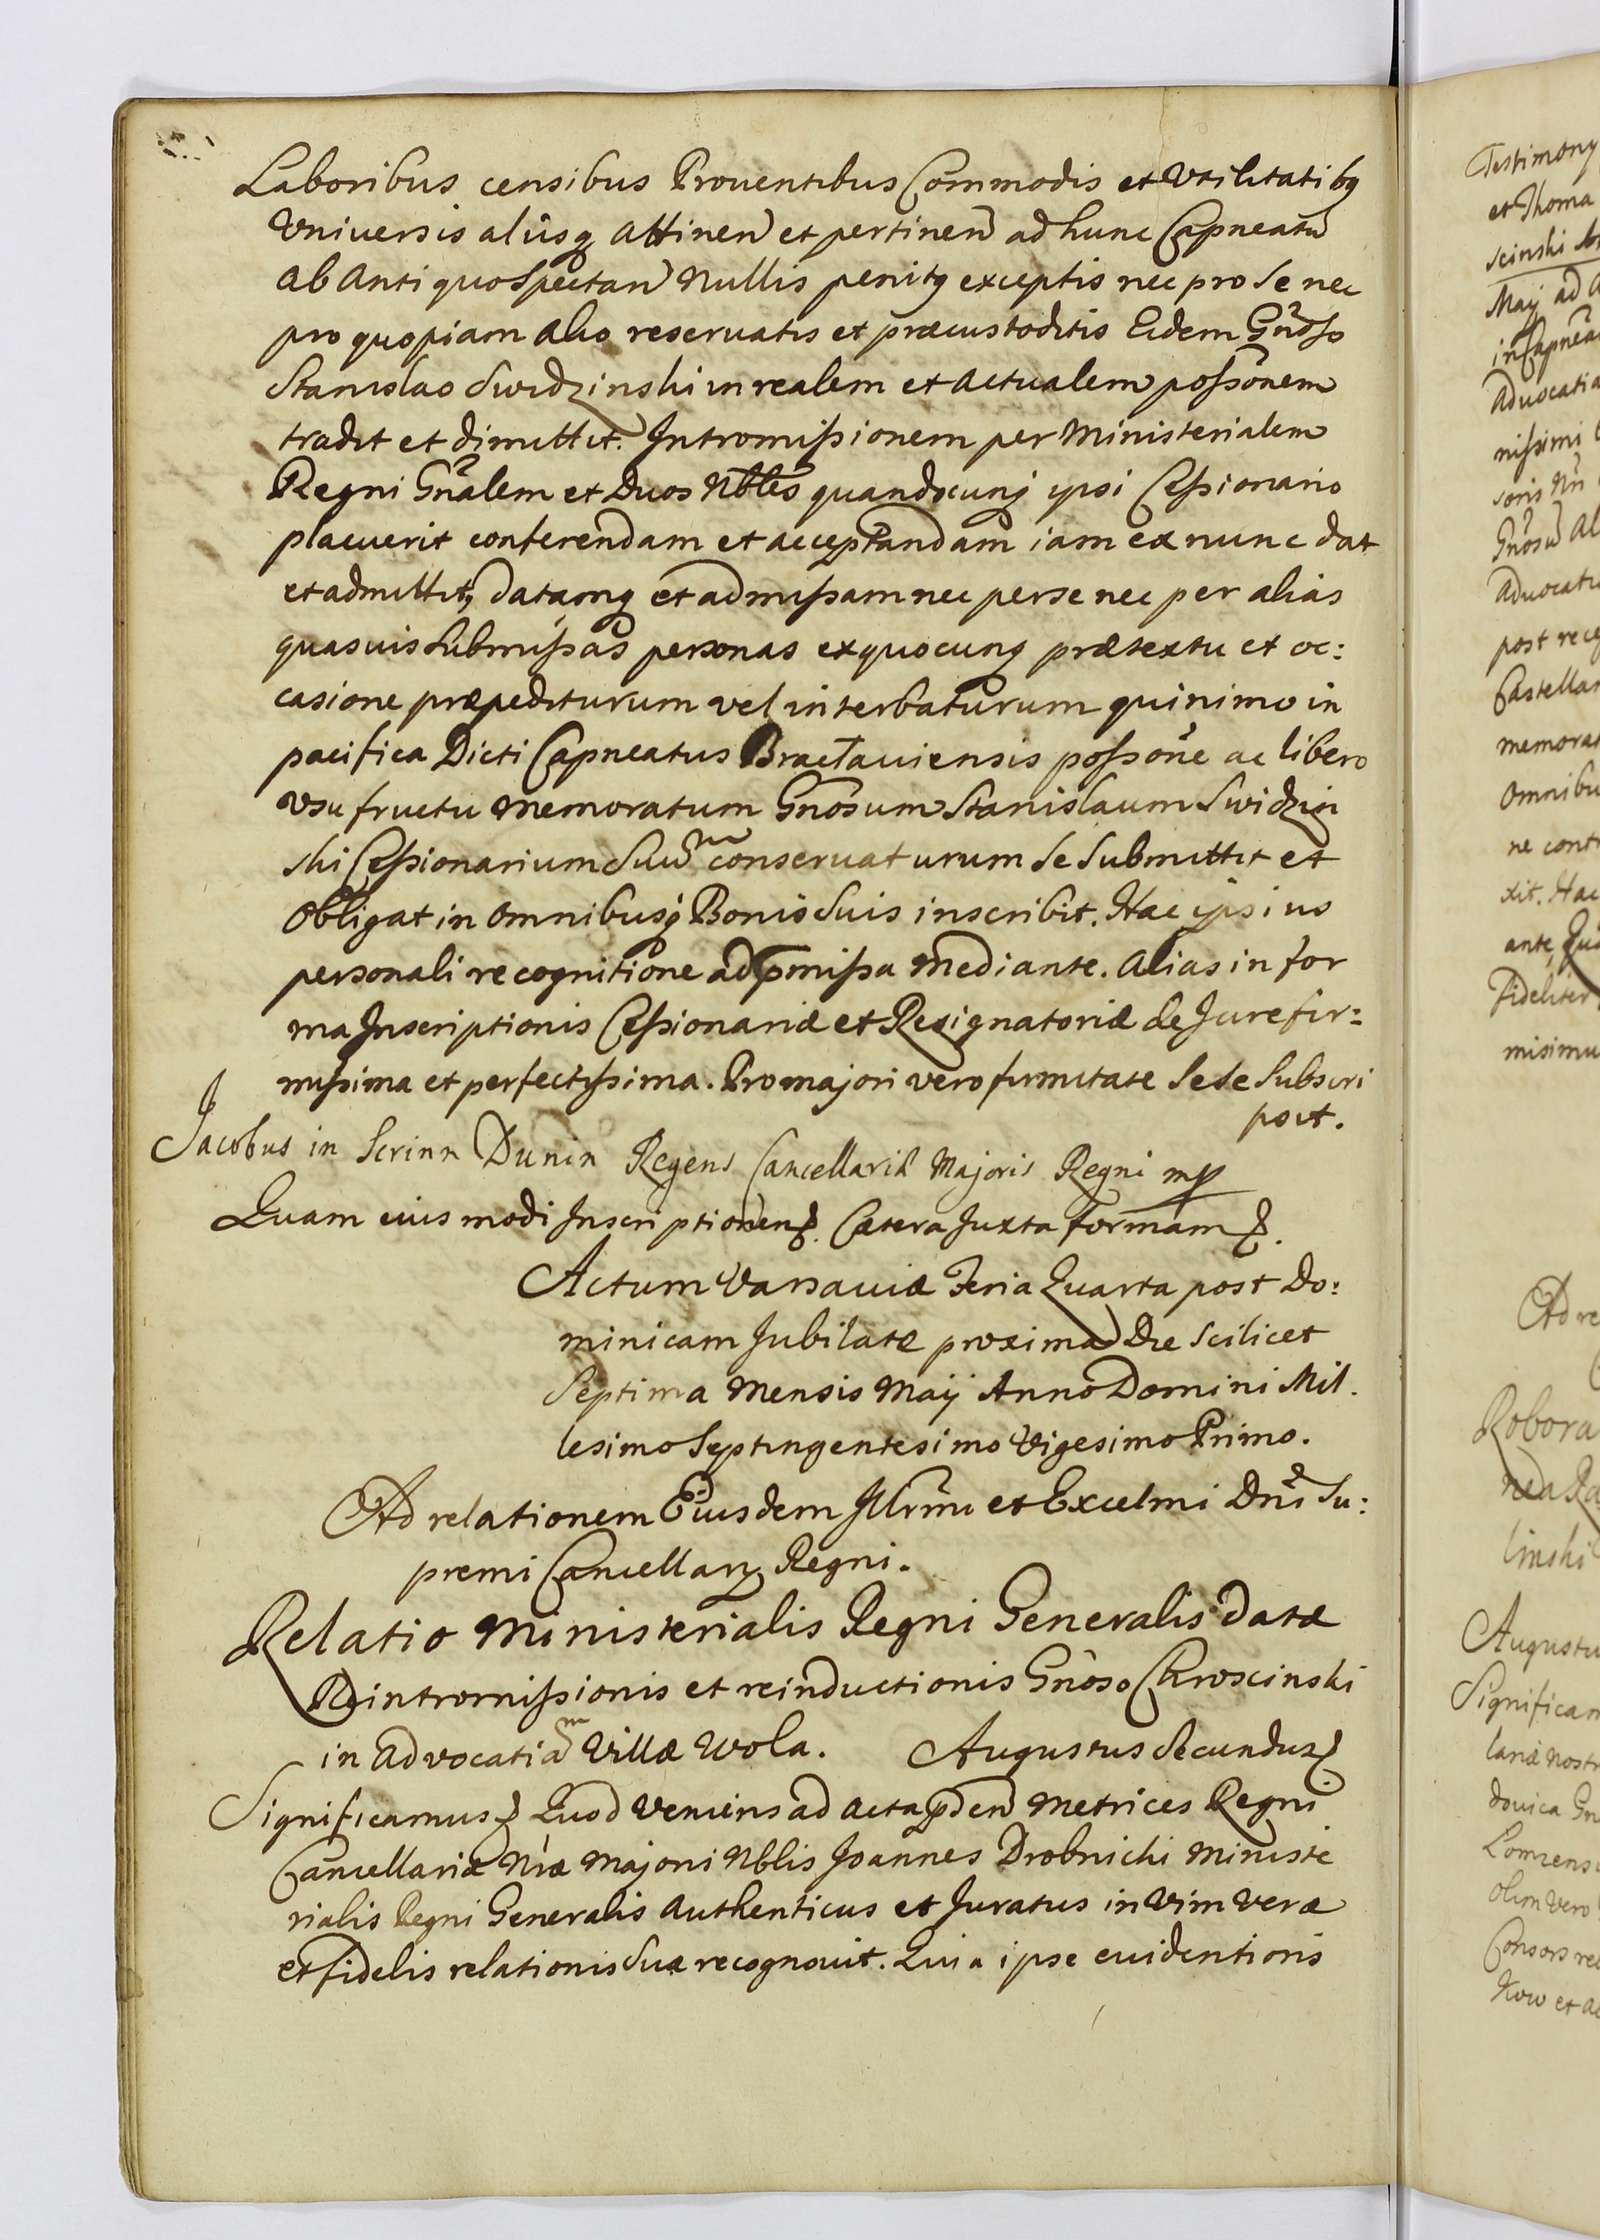 Laboribus censibus Prouentibus Commodis et Vtilitatibq
Vniuersis alijsq attinen et pertinen ad hunc Capneatu
ab antiquo spectan nullis penitq exceptis nec pro se nec
pro quopiam alio reseruatis et præcustoditis Eidem Gnoso
Stanislao Swidzinski in realem et actualem possonem
tradit et dimittit. Intromissionem per Ministerialem
Regni Gnalem et Duos Nbles quandocunq ipsi Cessionario
placuerit conferendam et acceptandam iam ex nunc dat
et admittit, datamq et admissam nec per se nec per alias
quasuis submissas personas ex quocunq prætextu et oc:
casione præpediturum vel interbaturum quinimo in
pacifica Dicti Capneatus Bractauiensis possone ac libero
vsu fructu memoratum Gnosum Stanislaum Swidzin
ski Cessionarium suum conseruaturum se submittit et
obligat in omnibusq Bonis suis inscribit. Hac ipsius
personali recognitione ad pmissa mediante. Alias in for
ma Inscriptionis Cessionariæ et Resignatoriæ de Jure fir=
missima et perfectissima. Pro majori vero firmitate sese subscri
psit.
Jacobus in Scrinn Dunin Regens Cancellariæ Majoris Regni mp
Quam eiusmodi Inscriptionem. Cætera Juxta formam.
Actum Varsauiæ Feria Quarta post Do:
minicam Jubilate proxima Die scilicet
Septima Mensis Maij Anno Domini Mil.
lesimo Septingentesimo Vigesimo Primo.
Ad relationem Eiusdem Illrmi et Excelmi Dni Su:
premi Cancellarij Regni.
Relatio Ministerialis Regni Generalis datæ
Reintromissionis et reinductionis Gnoso Chroscinski
in advocatiam Villæ Wola. Augustus Secundus
Significamus Quod veniens ad acta pden Metrices Regni
Cancellariæ Nræ Majori Nblis Joannes Drobnicki Ministe
rialis Regni Generalis authenticus et Juratus in Vim veræ
et fidelis relationis suæ recognouit. Quia ipse euidentioris
Testimony
et Thoma
scinski
Maij ad
in Capnea
aduocatia
nissimi
soris Nri
Gnosu Al
aduocatu
post rece
Castellan
memorat
omnibu
ne contr
xit. Hac
ante, Qua
Fideliter
misimu
Ad re
Robora
nea Ra
linski
Augustu
Significam
lariæ nostr
douica Gn
Lomzensi
olim vero
Consors rel
kow et ac